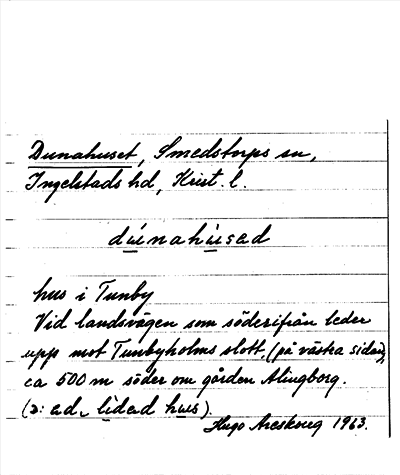 Dunahuset, Smedstorps sn,
Ingelstads hd, Krist. l.
dúnahùsad
hus i Tunby
Vid landsvägen som söderifrån leder
upp mot Tunbyholms slott, (på västra sidan),
ca 500 m söder om gården Alingborg.
(ɔ: ed, lìded hus).
Hugo Areskoug 1963.